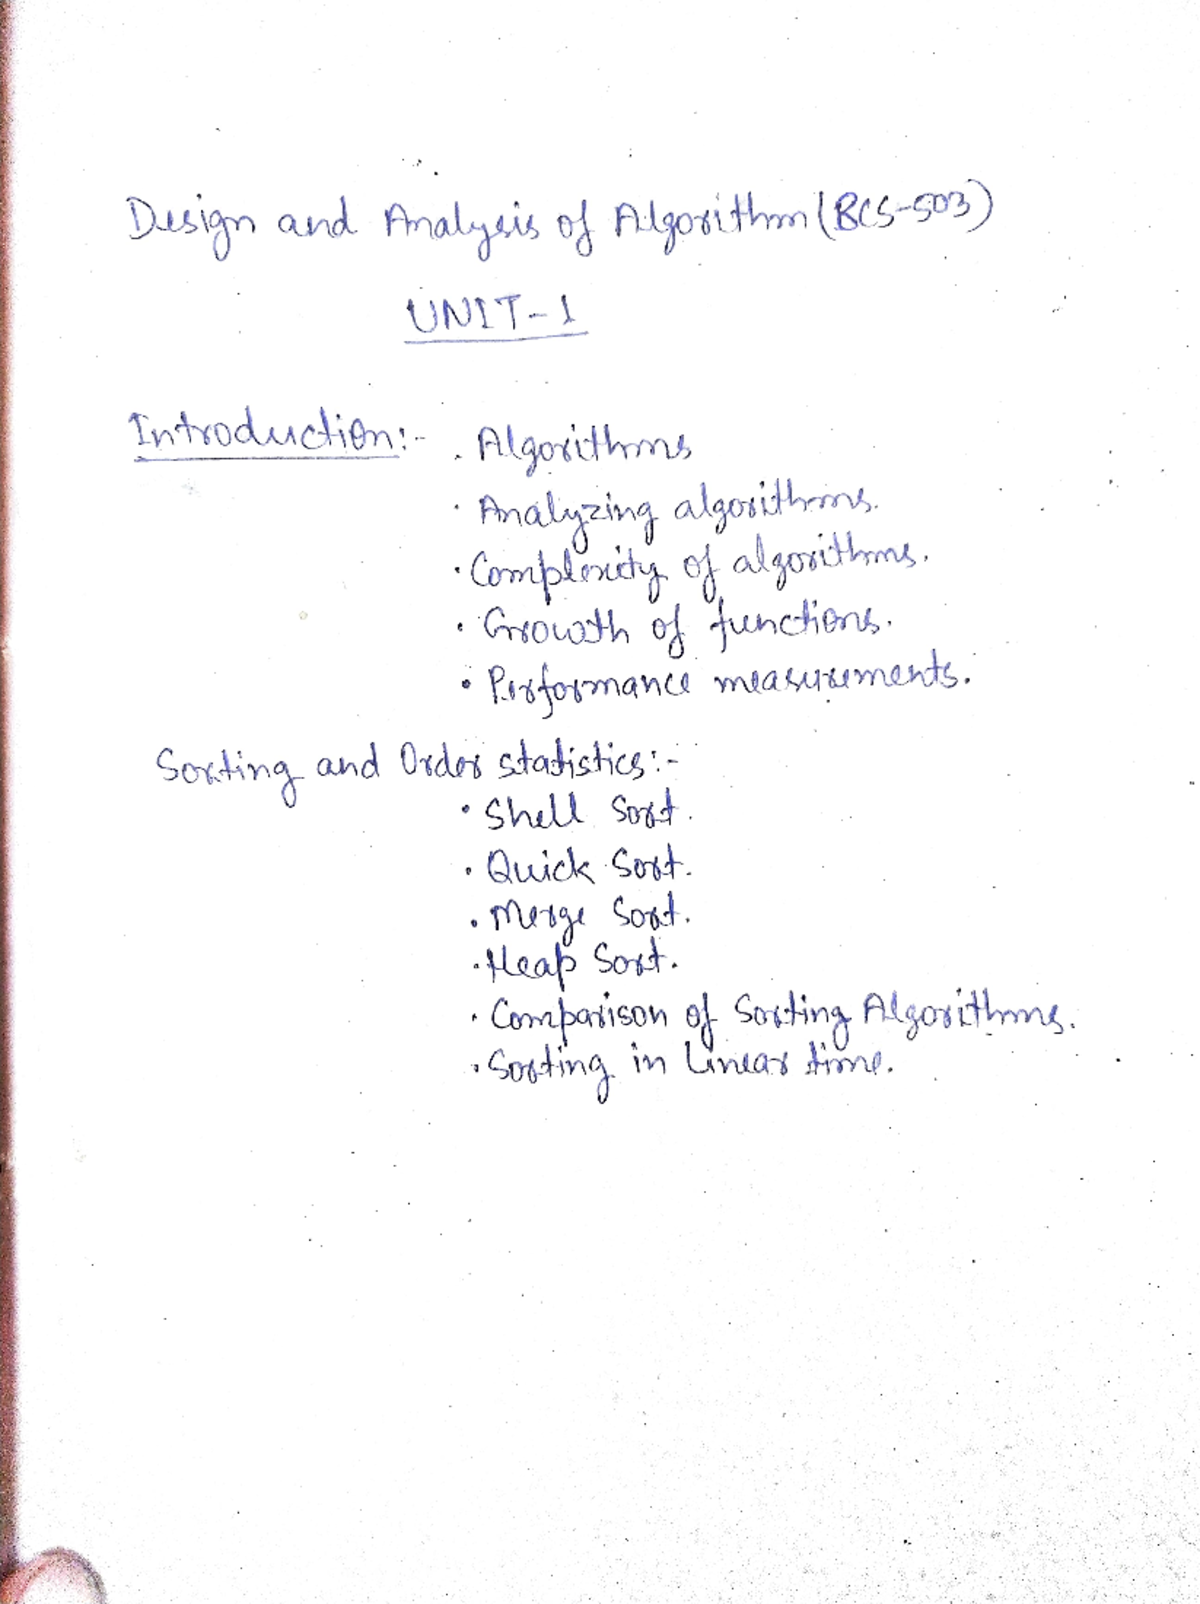 Design and Analysis of Algorithm (BCS-503)
UNIT-1
Introduction:- . Algorithms
· Analyzing algorithms.
· Complexity of algorithms.
· Growth of functions.
· Performance measurements.
Sorting and Order statistics:-
· Shell Sort.
· Quick Sort.
· Merge Sort.
· Heap Sort.
· Comparison of Sorting Algorithms.
· Sorting in Linear time.